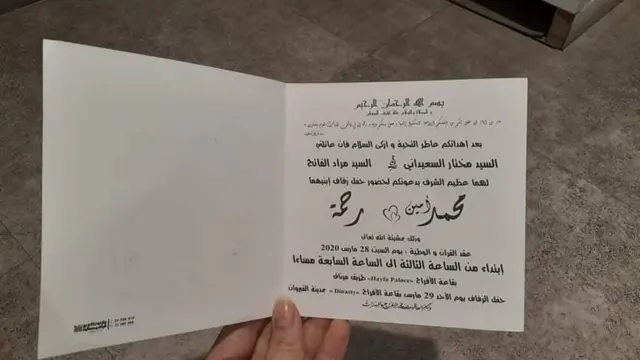 بسم الله الرحمان الرحيم
بعد اهدائكم عاطر التحية و ازكى السلام فان عائلتي
السيد مختار السعيداني و السيد مراد الفالح
لهما عظيم الشرف بدعوتكم لحضور حفل زفاف إبنيهما
محمد أمين رحمة
وذلك بمشيئة الله تعالى
عقد القران و الوطية : يوم السبت 28 مارس 2020
إبتداء من الساعة الثالثة إلى الساعة السابعة مساءا
بقاعة الأفراح «Hayfa Palace» طريق مرناق
حفل الزفاف يوم الأحد 29 مارس بقاعة الأفراح «Dinasty» مدينة القيروان